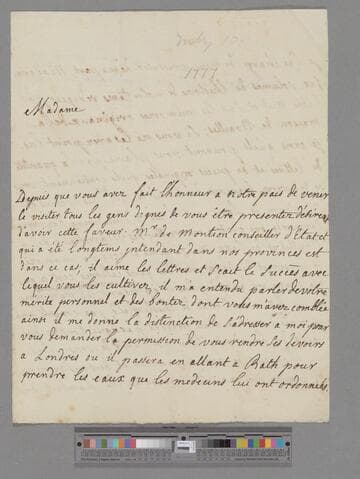 1777
Madame
Depuis que vous avez fait l'honneur a notre pais de venir
le visiter tous les gens dignes de vous être presentez desirent
d'avoir cette faveur. Mr. de Montion conseiller d'Etat et
qui a été longtems intendant dans nos provinces est
dans ce cas, il aime les lettres et sçait le succès avec
lequel vous les cultivez, il m'a entendu parler de votre
mérite personnel et des bontez dont vous m'avez comblée
ainsi il me donne la distinction de s'adresser a moi pour
vous demander la permission de vous rendre ses devoirs
a Londres ou il passera en allant a Bath pour
prendre les eaux que les medecins lui ont ordonnées.